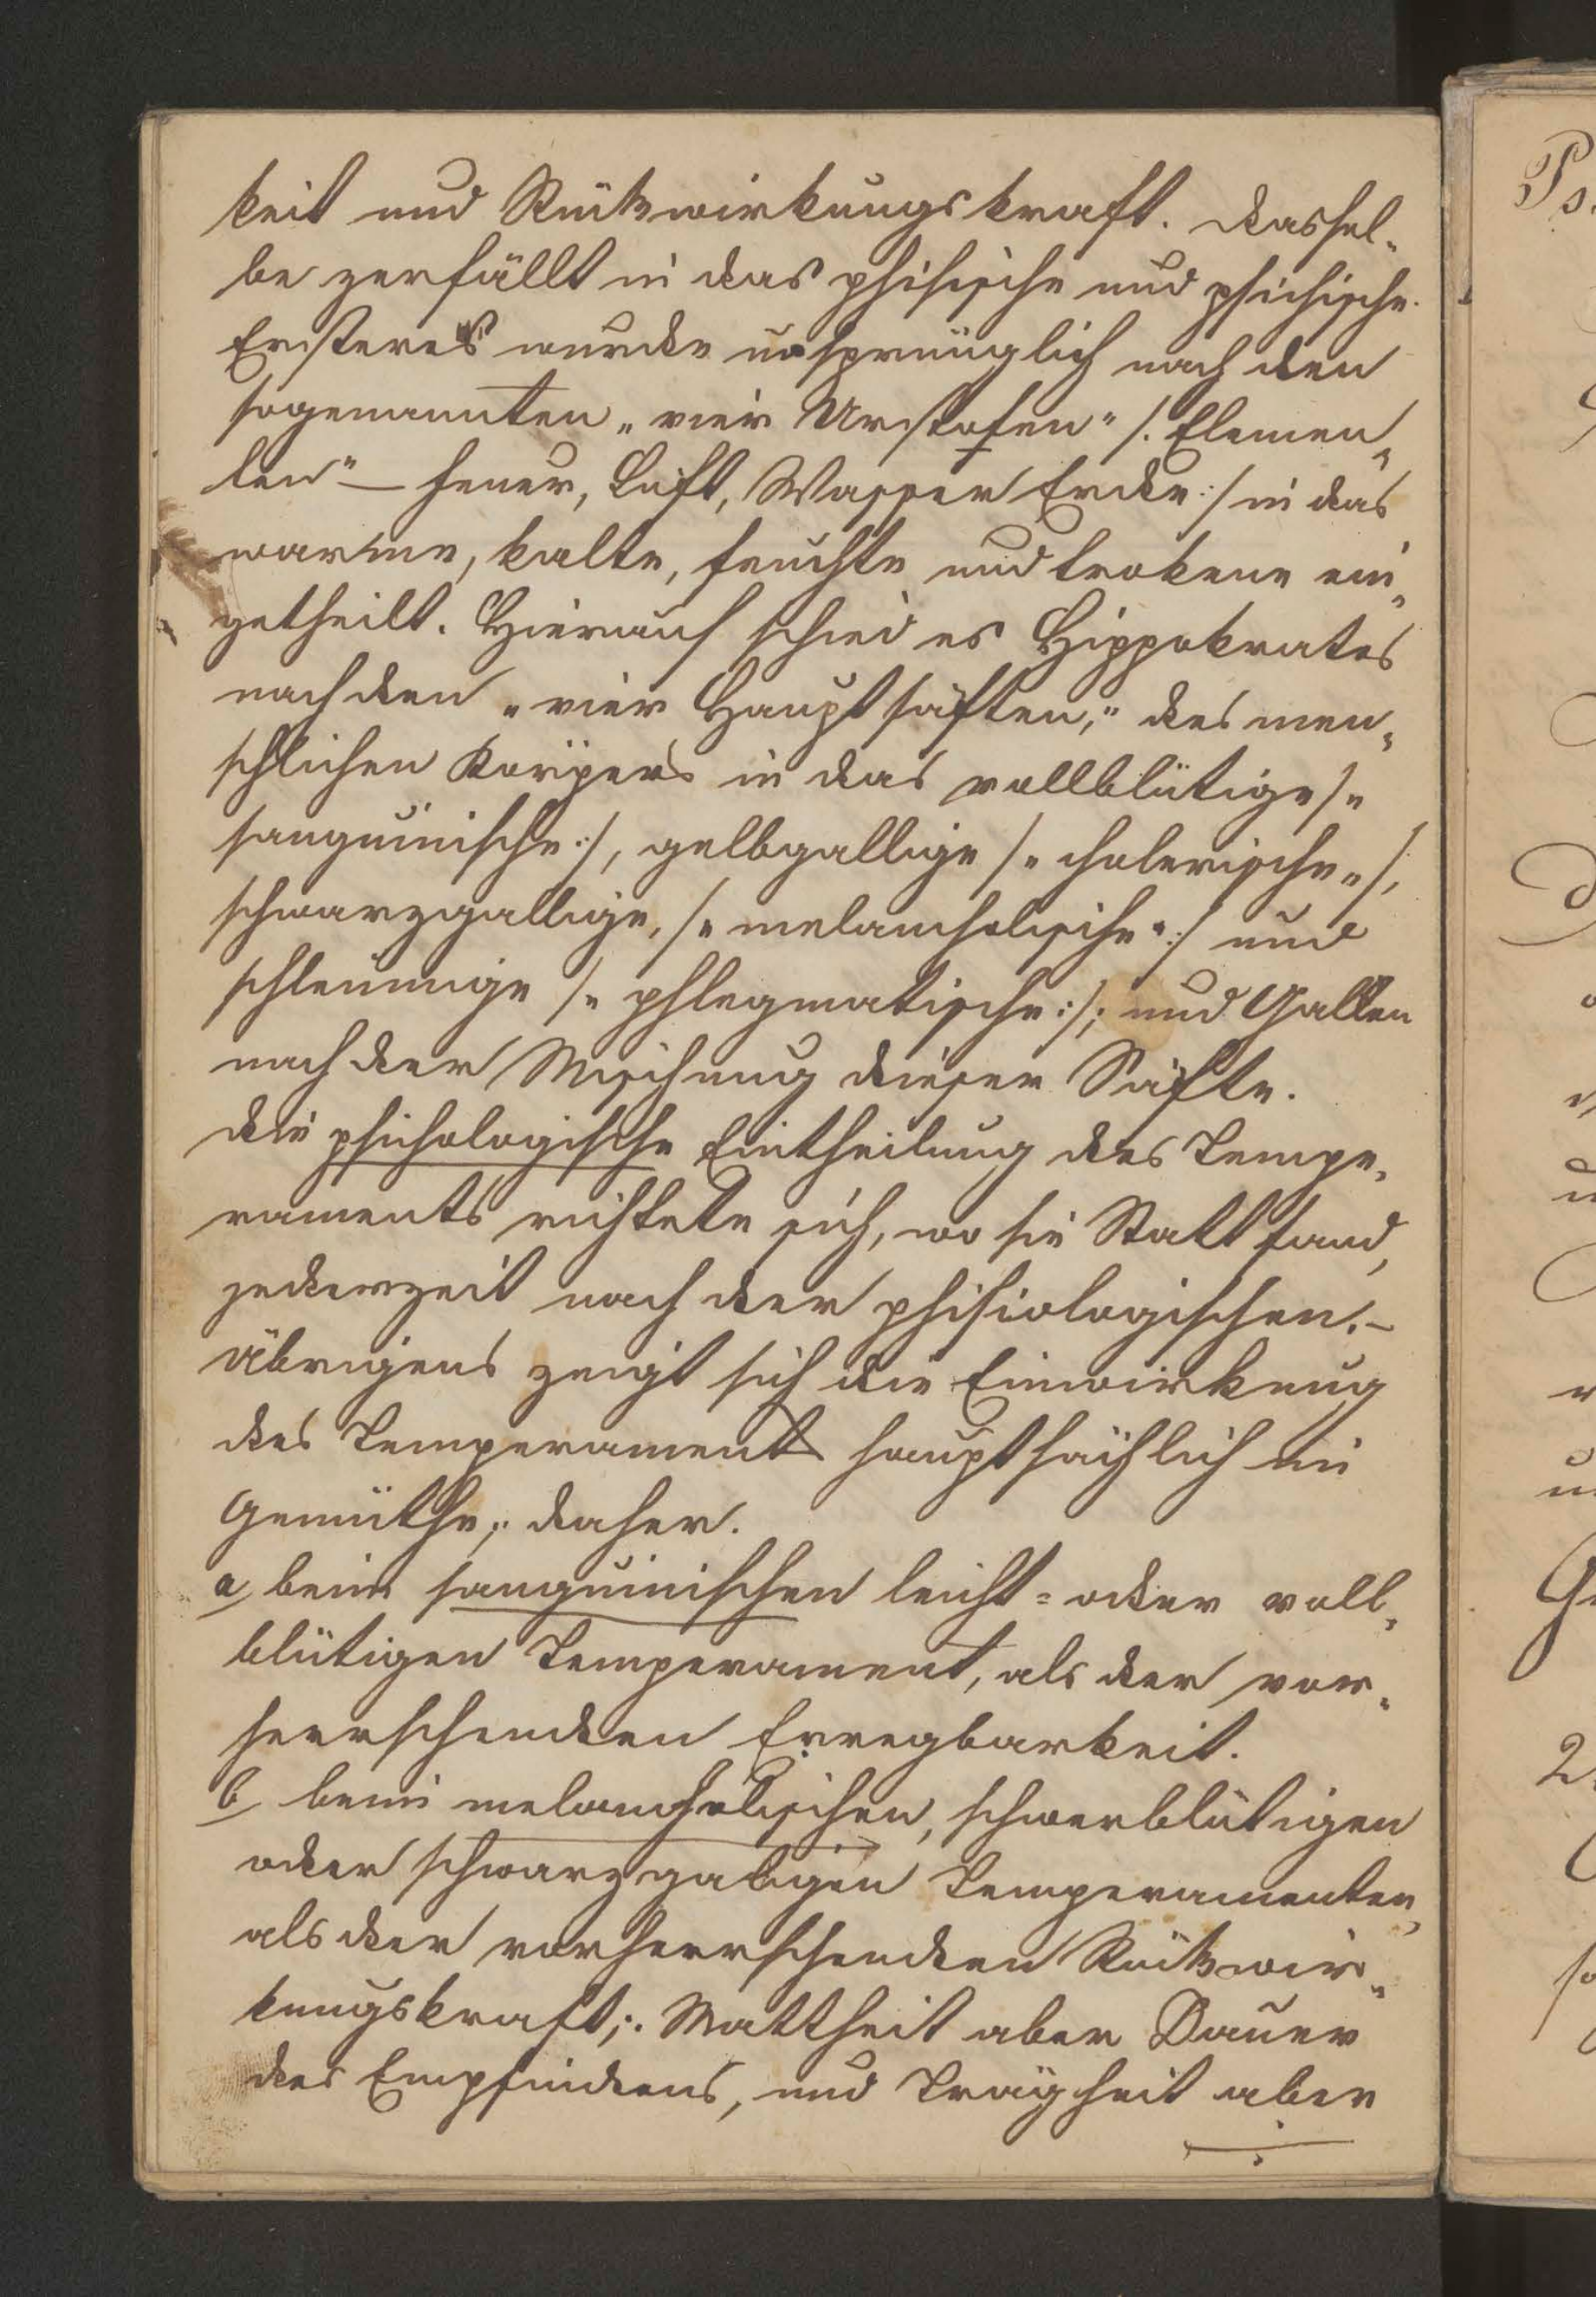 keit und Rückwirkungskraft. Dassel„
be zerfällt in das phisische und psichische.
Ersteres wurde ursprünglich nach den
sogenannten „vier Urstofen“ /. Elemen„
ten“ — Feuer, Luft, Wasser Erde :/ in das
warme, kalte, feuchte und trokene ein„
getheilt. Hierauf schied es Hippokrates
nach den „vier Hauptsäften,“ des men„
schlichen Körpers in das vollblütige /„
sanguinische :/, gelbgallige /„ cholerische„ /,
schwarzgallige, /„ melancholische“ :/ und
schleimige /„ phlegmatische :/; und Gallen
nach der Mischung dieser Säfte.
Die psichologische Eintheilung des Tempe„
raments richtete sich, wo sie Statt fand,
jederzeit nach der phisiologischen. –
Übrigens zeigt sich die Einwirkung
des Temperaments hauptsächlich im
Gemüthe,; daher.
a, beim sanguinischen leicht= oder voll„
blütigen Temperament, als der vor„
herrschenden Erregbarkeit.
b, beim melancholischen, schwerblütigen
oder schwarzgaligen Temperamenten,
als der vorherrschenden Rückwir„
kungskraft,:. Mattheit aber Dauer
des Empfindens, und Trägheit aber